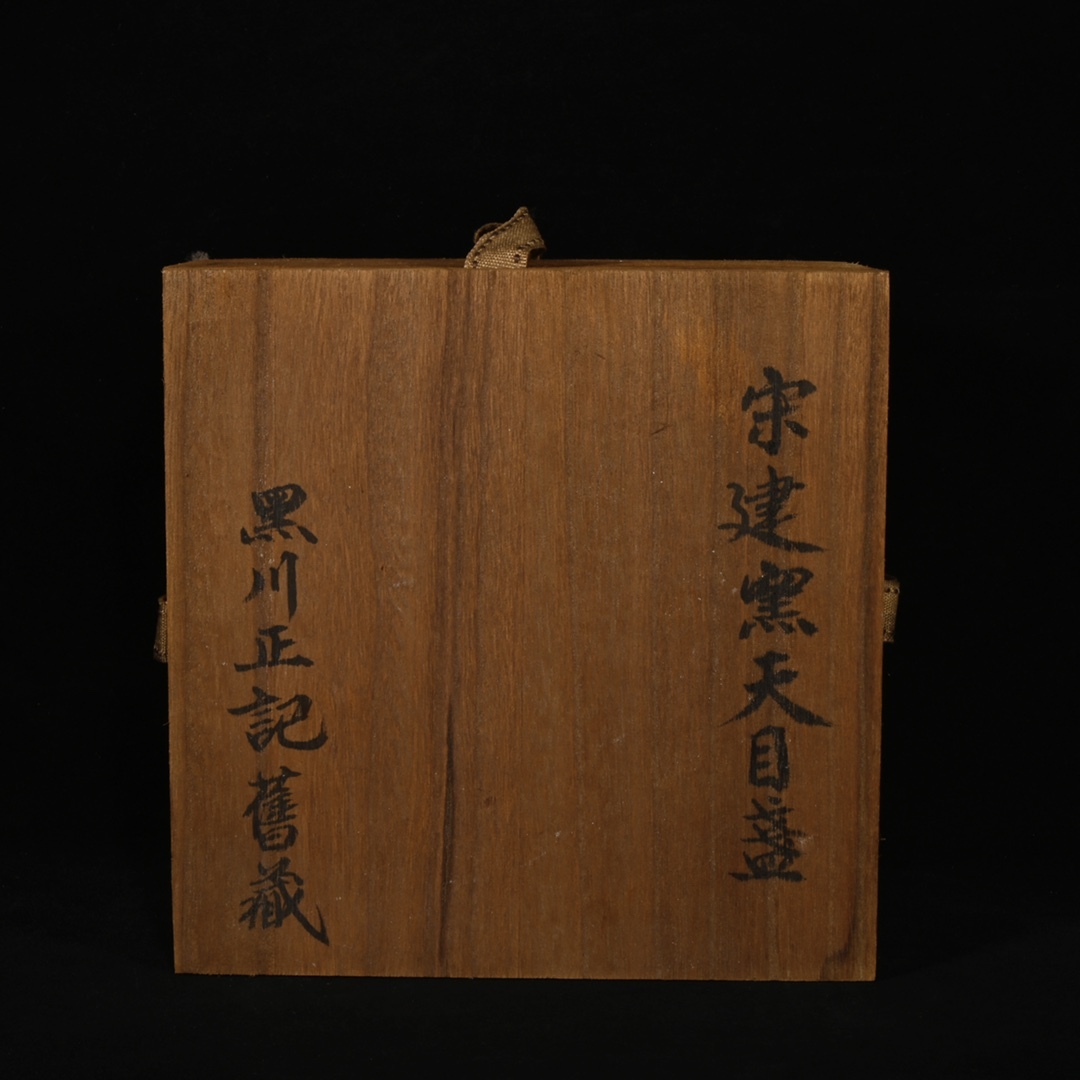 宋建窯天目盞
黑川正記舊藏